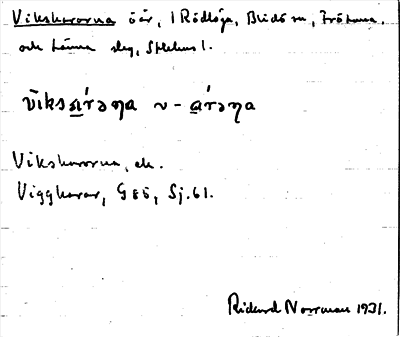 Vikskarorna öar, i Rödlöga, Blidö sn, Frötuna
och Länna slg, Sthlms l.
vīksa̲ŕəɳa ~ -a̲ŕəɳa
Vikskarorna, ek.
Viggkarar, GEÖ, Sj.61.
Rickard Norrman 1931.